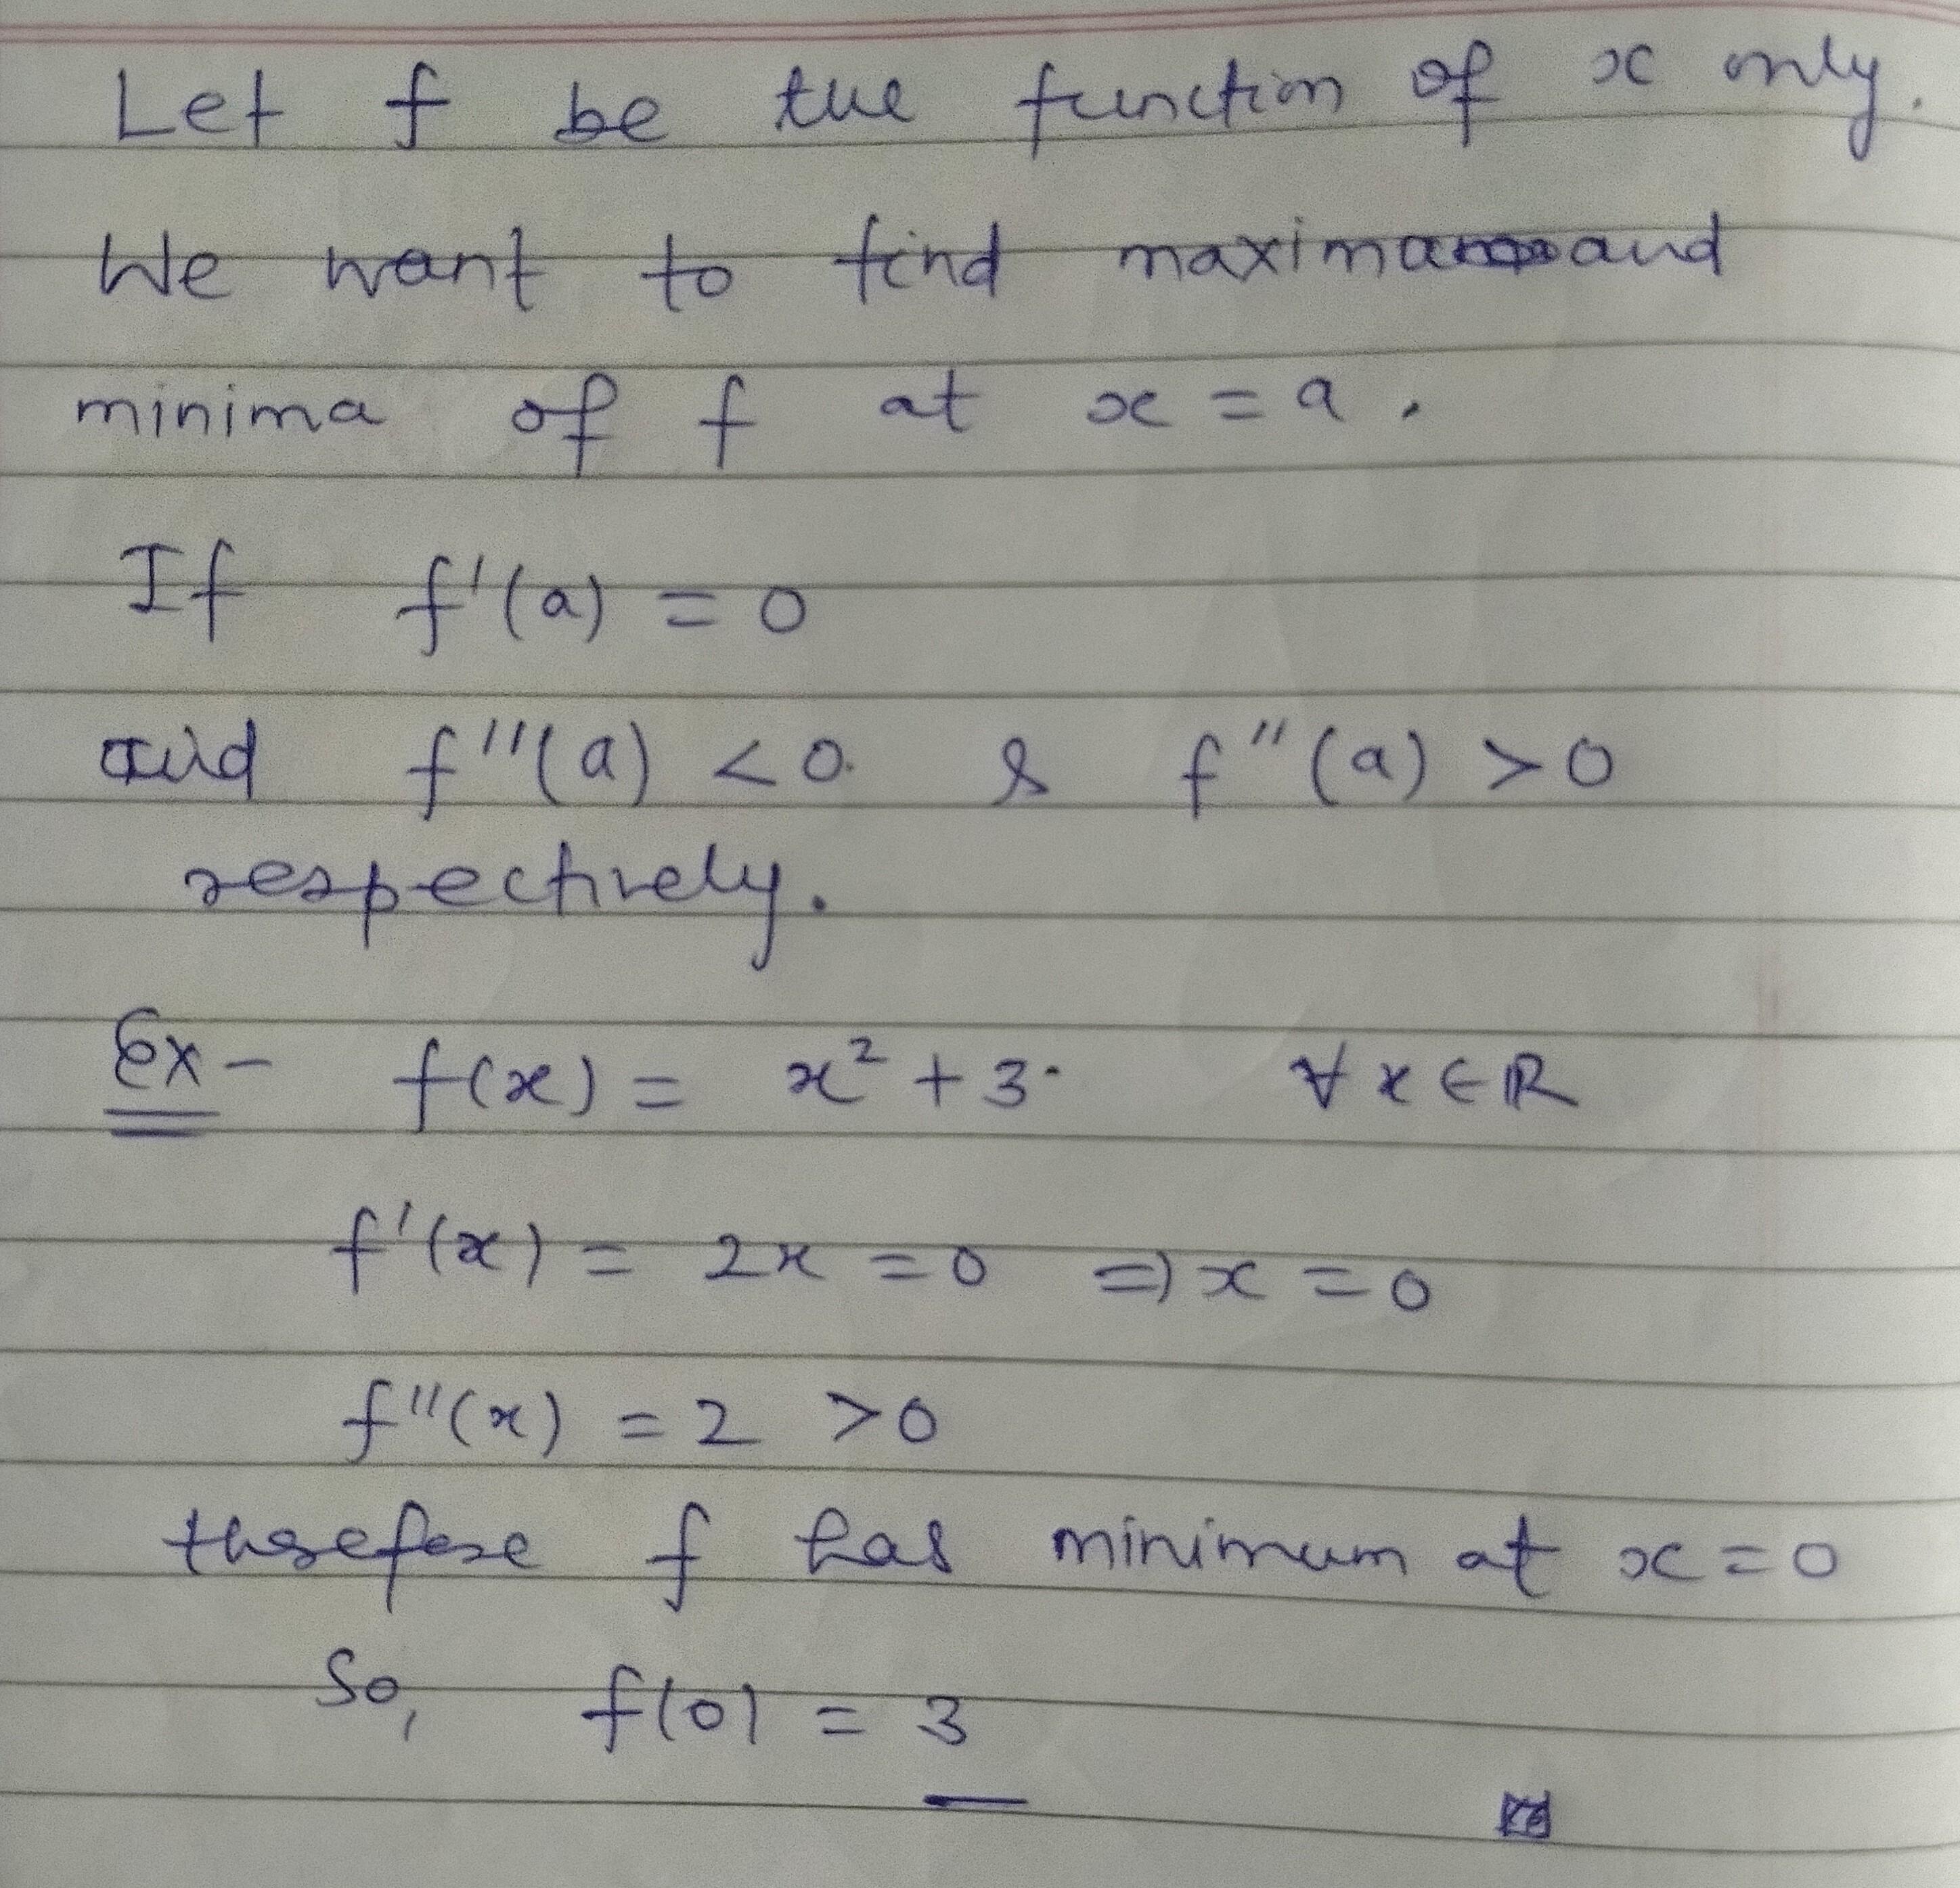 Let f be the function of x only.
We want to find maxima and
minima of f at x = a.
If f'(a) = 0
and f''(a) < 0. & f''(a) > 0
respectively.
Ex - f(x) = x² + 3. ∀ x ∈ ℝ
f'(x) = 2x = 0 ⇒ x = 0
f''(x) = 2 > 0
therefore f has minimum at x = 0
So, f(0) = 3